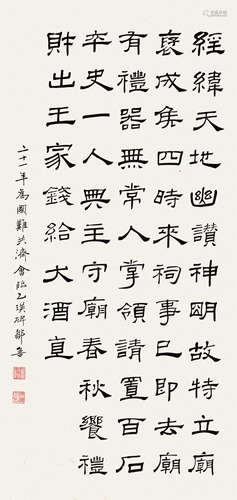 經緯天地幽讚神明故特立廟
褒成侯四時來祠事已即去廟
有禮器無常人掌領請置百石
卒史一人典主守廟春秋饗禮
財出王家錢給大酒直
二十一年為國難共濟會臨乙瑛碑 鄒魯